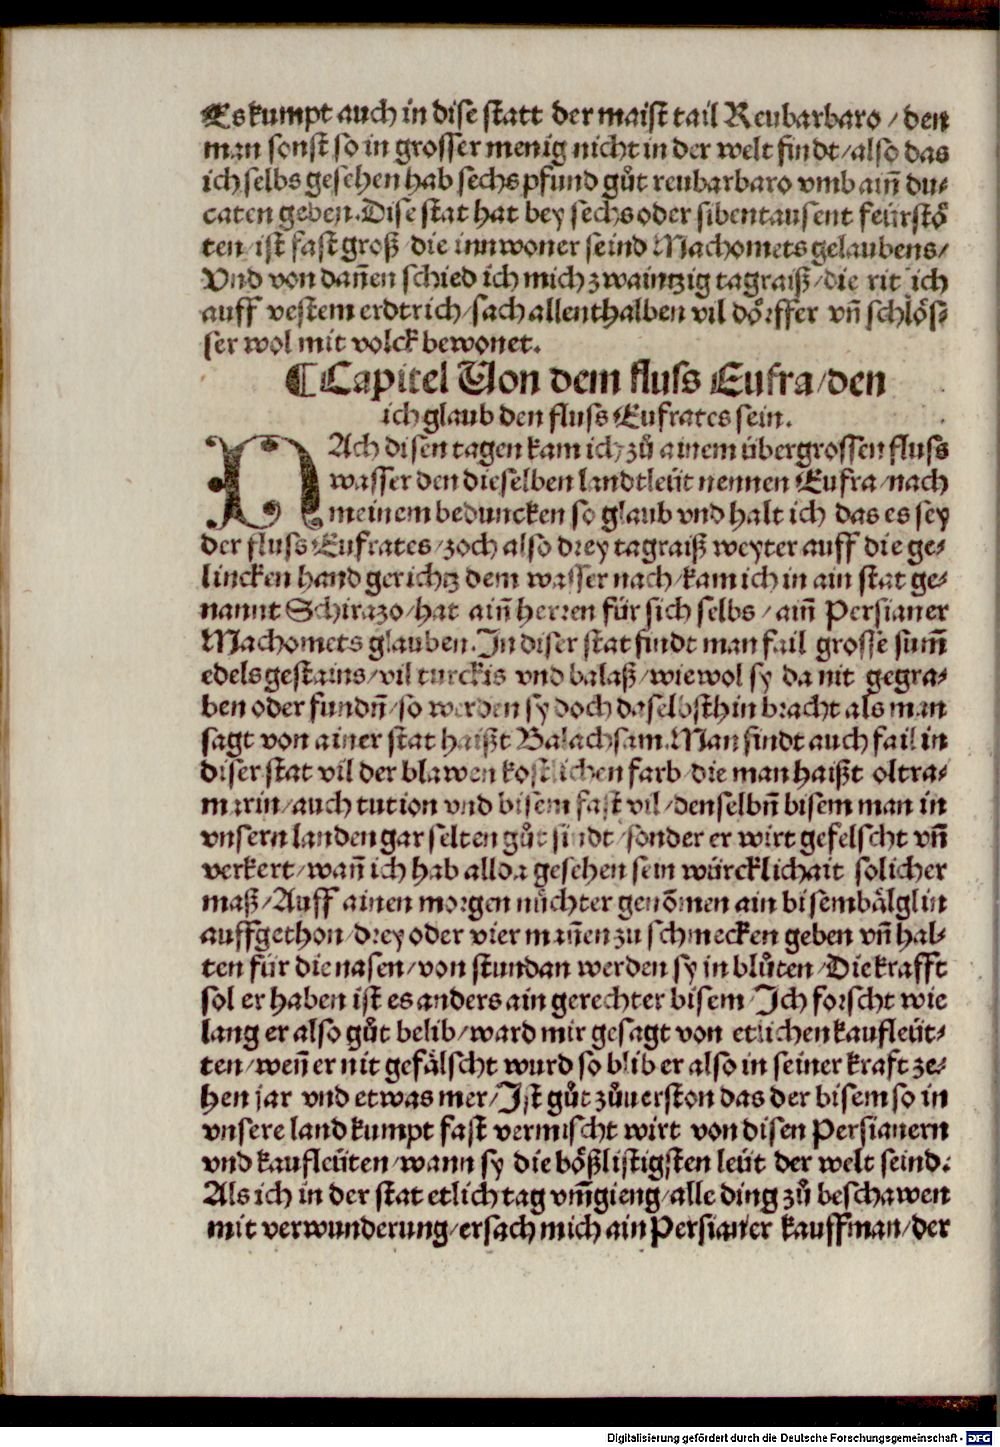 Es kumpt auch in dise statt der maist tail Reubarbaro / den
man sonst so in grosser menig nicht in der welt findt / also das
ich selbs gesehen hab sechs pfund gůt reubarbaro vmb ain̄ du⸗
caten geben. Dise stat hat bey sechs oder sibentausent feürstö
ten / ist fast groß / die innwoner seind Machomets gelaubens /
Vnd von dan̄en schied ich mich zwaintzig tagraiß / die rit ich
auff vestem erdtrich / sach allenthalben vil dörffer vn̄ schlös⸗
ser wol mit volck bewonet.
¶ Capitel Von dem fluss Eufra / den
ich glaub den fluss Eufrates sein.
NAch disen tagen kam ich zů ainem übergrossen fluss
wasser den dieselben landtleüt nennen Eufra / nach
meinem beduncken so glaub vnd halt ich das es sey
der fluss Eufrates / zoch also drey tagraiß weyter auff die ge⸗
lincken hand gerichtz dem wasser nach / kam ich in ain stat ge⸗
nannt Schirazo / hat ain̄ herren für sich selbs / ain̄ Persianer
Machomets glauben. In diser stat findt man fail grosse sum̄
edels gestains / vil turckis vnd balaß / wiewol sy da nit gegra⸗
ben oder fundn̄ / so werden sy doch daselbsthin bracht als man
sagt von ainer stat haißt Balachsam. Man findt auch fail in
diser stat vil der blawen kostlichen farb die man haißt oltra⸗
marin / auch tution vnd bisem fast vil / denselbn̄ bisem man in
vnsern landen gar selten gůt findt / sonder er wirt gefelscht vn̄
verkert / wan̄ ich hab allda gesehen sein würcklichait solicher
maß / Auff ainen morgen nůchter genōmen ain bisembälglin
auffgethon / drey oder vier man̄en zu schmecken geben vn̄ hal⸗
ten für die nasen / von stundan werden sy in blůten / Die krafft
sol er haben ist es anders ain gerechter bisem / Ich forscht wie
lang er also gůt belib / ward mir gesagt von etlichen kaufleüt⸗
ten / wen̄ er nit gefälscht wurd so blib er also in seiner kraft ze⸗
hen jar vnd etwas mer / Ist gůt zůuerston das der bisem so in
vnsere land kumpt fast vermischt wirt von disen Persianern
vnd kaufleüten / wann sy die bößlistigsten leüt der welt seind.
Als ich in der stat etlich tag vm̄gieng / alle ding zů beschawen
mit verwunderung / ersach mich ain Persianer kauffman / der
Digitalisierung gefördert durch die Deutsche Forschungsgemeinschaft - DFG